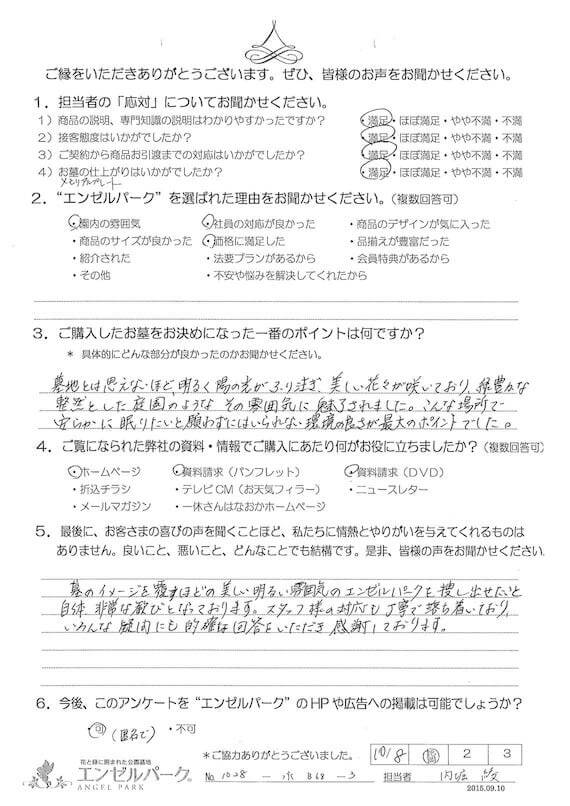 ご縁をいただきありがとうございます。ぜひ、皆様のお声をお聞かせください。
1．担当者の「応対」についてお聞かせください。
1）商品の説明、専門知識の説明はわかりやすかったですか？ 満足・ほぼ満足・やや不満・不満
2）接客態度はいかがでしたか？ 満足・ほぼ満足・やや不満・不満
3）ご契約から商品お引渡までの対応はいかがでしたか？ 満足・ほぼ満足・やや不満・不満
4）お墓の仕上がりはいかがでしたか？ 満足・ほぼ満足・やや不満・不満
メモリアルプレート
2．“エンゼルパーク”を選ばれた理由をお聞かせください。（複数回答可）
・園内の雰囲気 ・社員の対応が良かった ・商品のデザインが気に入った
・商品のサイズが良かった ・価格に満足した ・品揃えが豊富だった
・紹介された ・法要プランがあるから ・会員特典があるから
・その他 ・不安や悩みを解決してくれたから
3．ご購入したお墓をお決めになった一番のポイントは何ですか？
＊ 具体的にどんな部分が良かったのかお聞かせください。
墓地とは思えないほど、明るく陽の光がふり注ぎ、美しい花々が咲いており、緑豊かな
整然とした庭園のような その雰囲気に魅了されました。こんな場所で
安らかに眠りたいと願わずにはいられない環境の良さが最大のポイントでした。
4．ご覧になられた弊社の資料・情報でご購入にあたり何がお役に立ちましたか？（複数回答可）
・ホームページ ・資料請求（パンフレット） ・資料請求（DVD）
・折込チラシ ・テレビCM（お天気フィラー） ・ニュースレター
・メールマガジン ・一休さんはなおかホームページ
5．最後に、お客さまの喜びの声を聞くことほど、私たちに情熱とやりがいを与えてくれるものは
ありません。良いこと、悪いこと、どんなことでも結構です。是非、皆様の声をお聞かせください。
墓のイメージを覆すほどの美しい明るい雰囲気のエンゼルパークを捜し出せたこと
自体 非常な歓びとなっております。スタッフ様の対応も丁寧で落ち着いており、
いろんな疑問にも的確な回答をいただき感謝しております。
6．今後、このアンケートを“エンゼルパーク”のHPや広告への掲載は可能でしょうか？
・可 (匿名で) ・不可
＊ご協力ありがとうございました。 10/8 2 3
花と緑に囲まれた公園墓地
エンゼルパーク®
ANGEL PARK
No. 1028 - 水 B68 - 3 担当者
2015.09.10